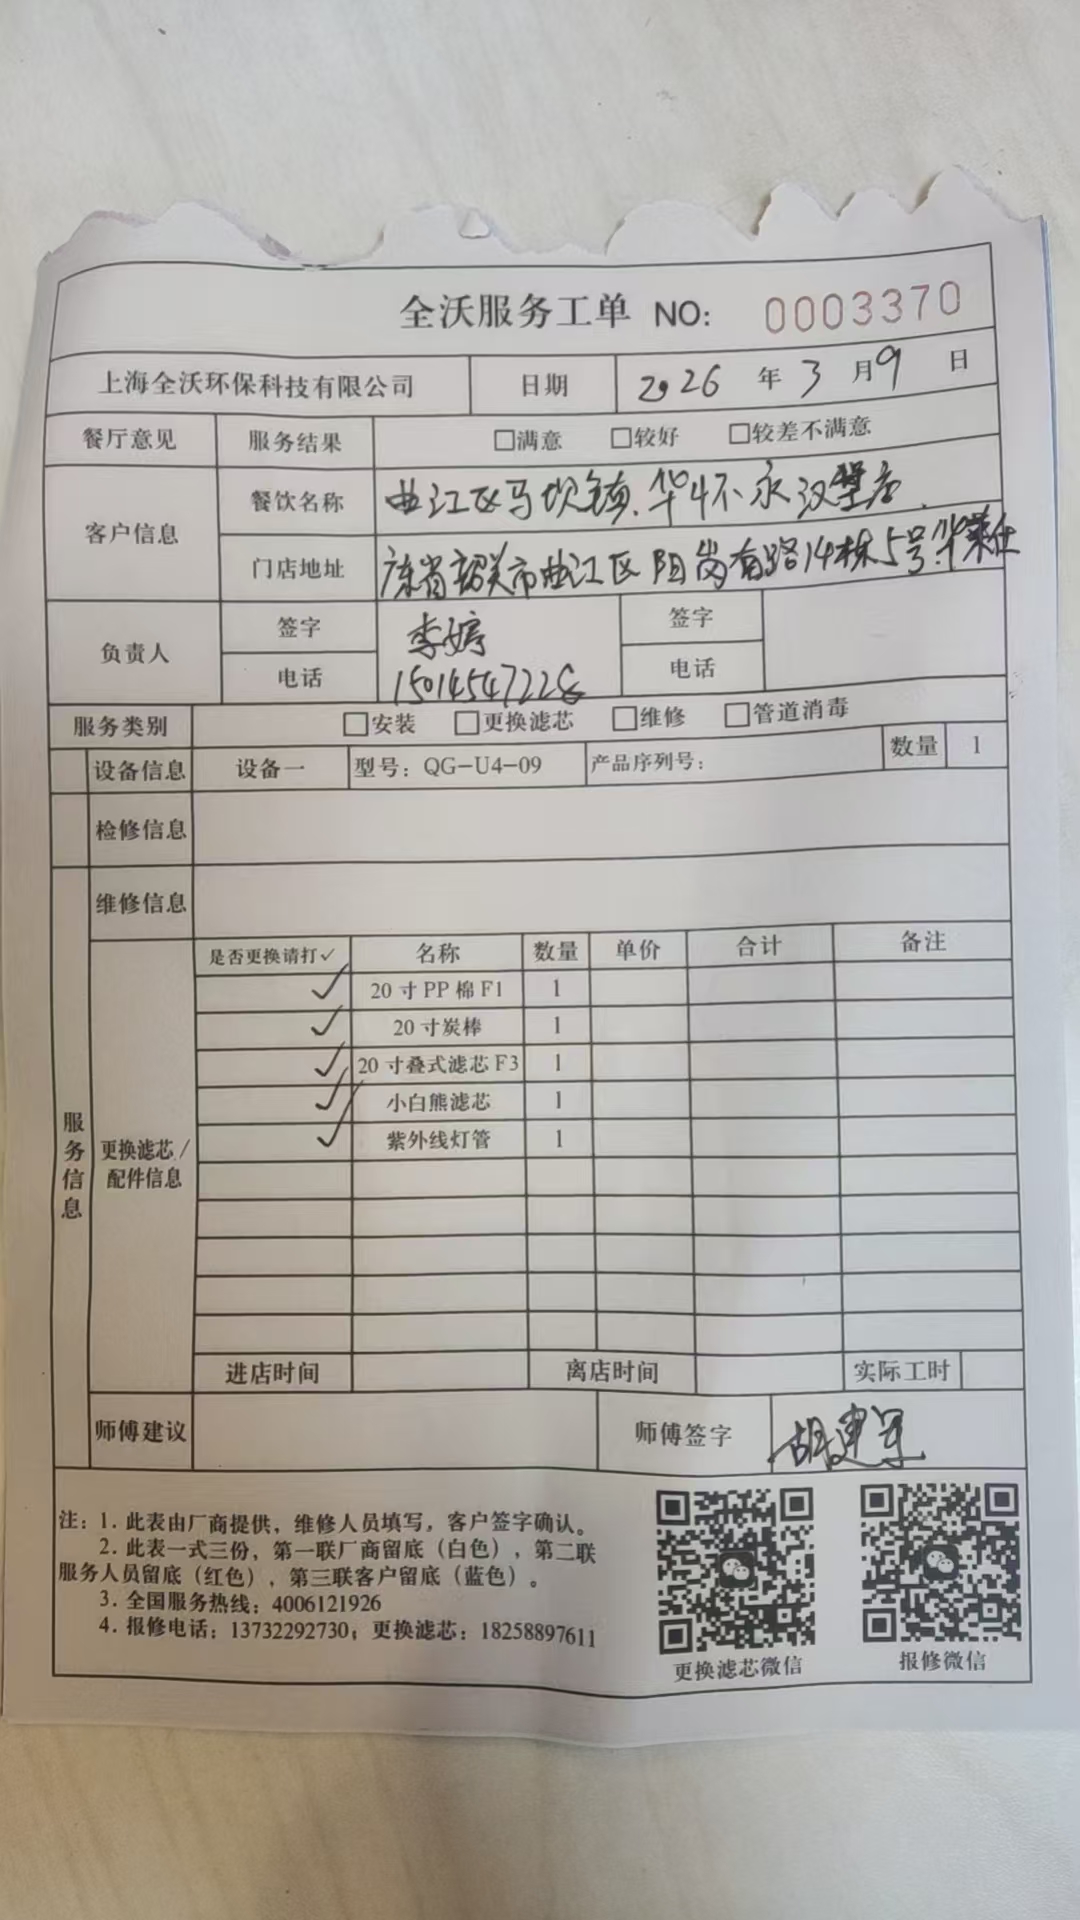 全沃服务工单 NO: 0003370
上海全沃环保科技有限公司 日期 2026 年 3 月 9 日
餐厅意见 服务结果 □满意 □较好 □较差不满意
客户信息 餐饮名称 曲江区马坝镇.华怀永汉堡店.
门店地址 广东省韶关市曲江区阳岗南路14栋5号.华莱仕
负责人 签字 李婷 签字
电话 15014547228 电话
服务类别 □安装 □更换滤芯 □维修 □管道消毒
设备信息 设备一 型号：QG-U4-09 产品序列号： 数量 1
检修信息
服务信息
维修信息
更换滤芯/配件信息
是否更换请打✓ 名称 数量 单价 合计 备注
✓ 20寸PP棉F1 1
✓ 20寸炭棒 1
✓ 20寸叠式滤芯F3 1
✓ 小白熊滤芯 1
✓ 紫外线灯管 1
进店时间 离店时间 实际工时
师傅建议 师傅签字 胡建军
注：1. 此表由厂商提供，维修人员填写，客户签字确认。
2. 此表一式三份，第一联厂商留底（白色），第二联
服务人员留底（红色），第三联客户留底（蓝色）。
3. 全国服务热线：4006121926
4. 报修电话：13732292730；更换滤芯：18258897611
更换滤芯微信 报修微信